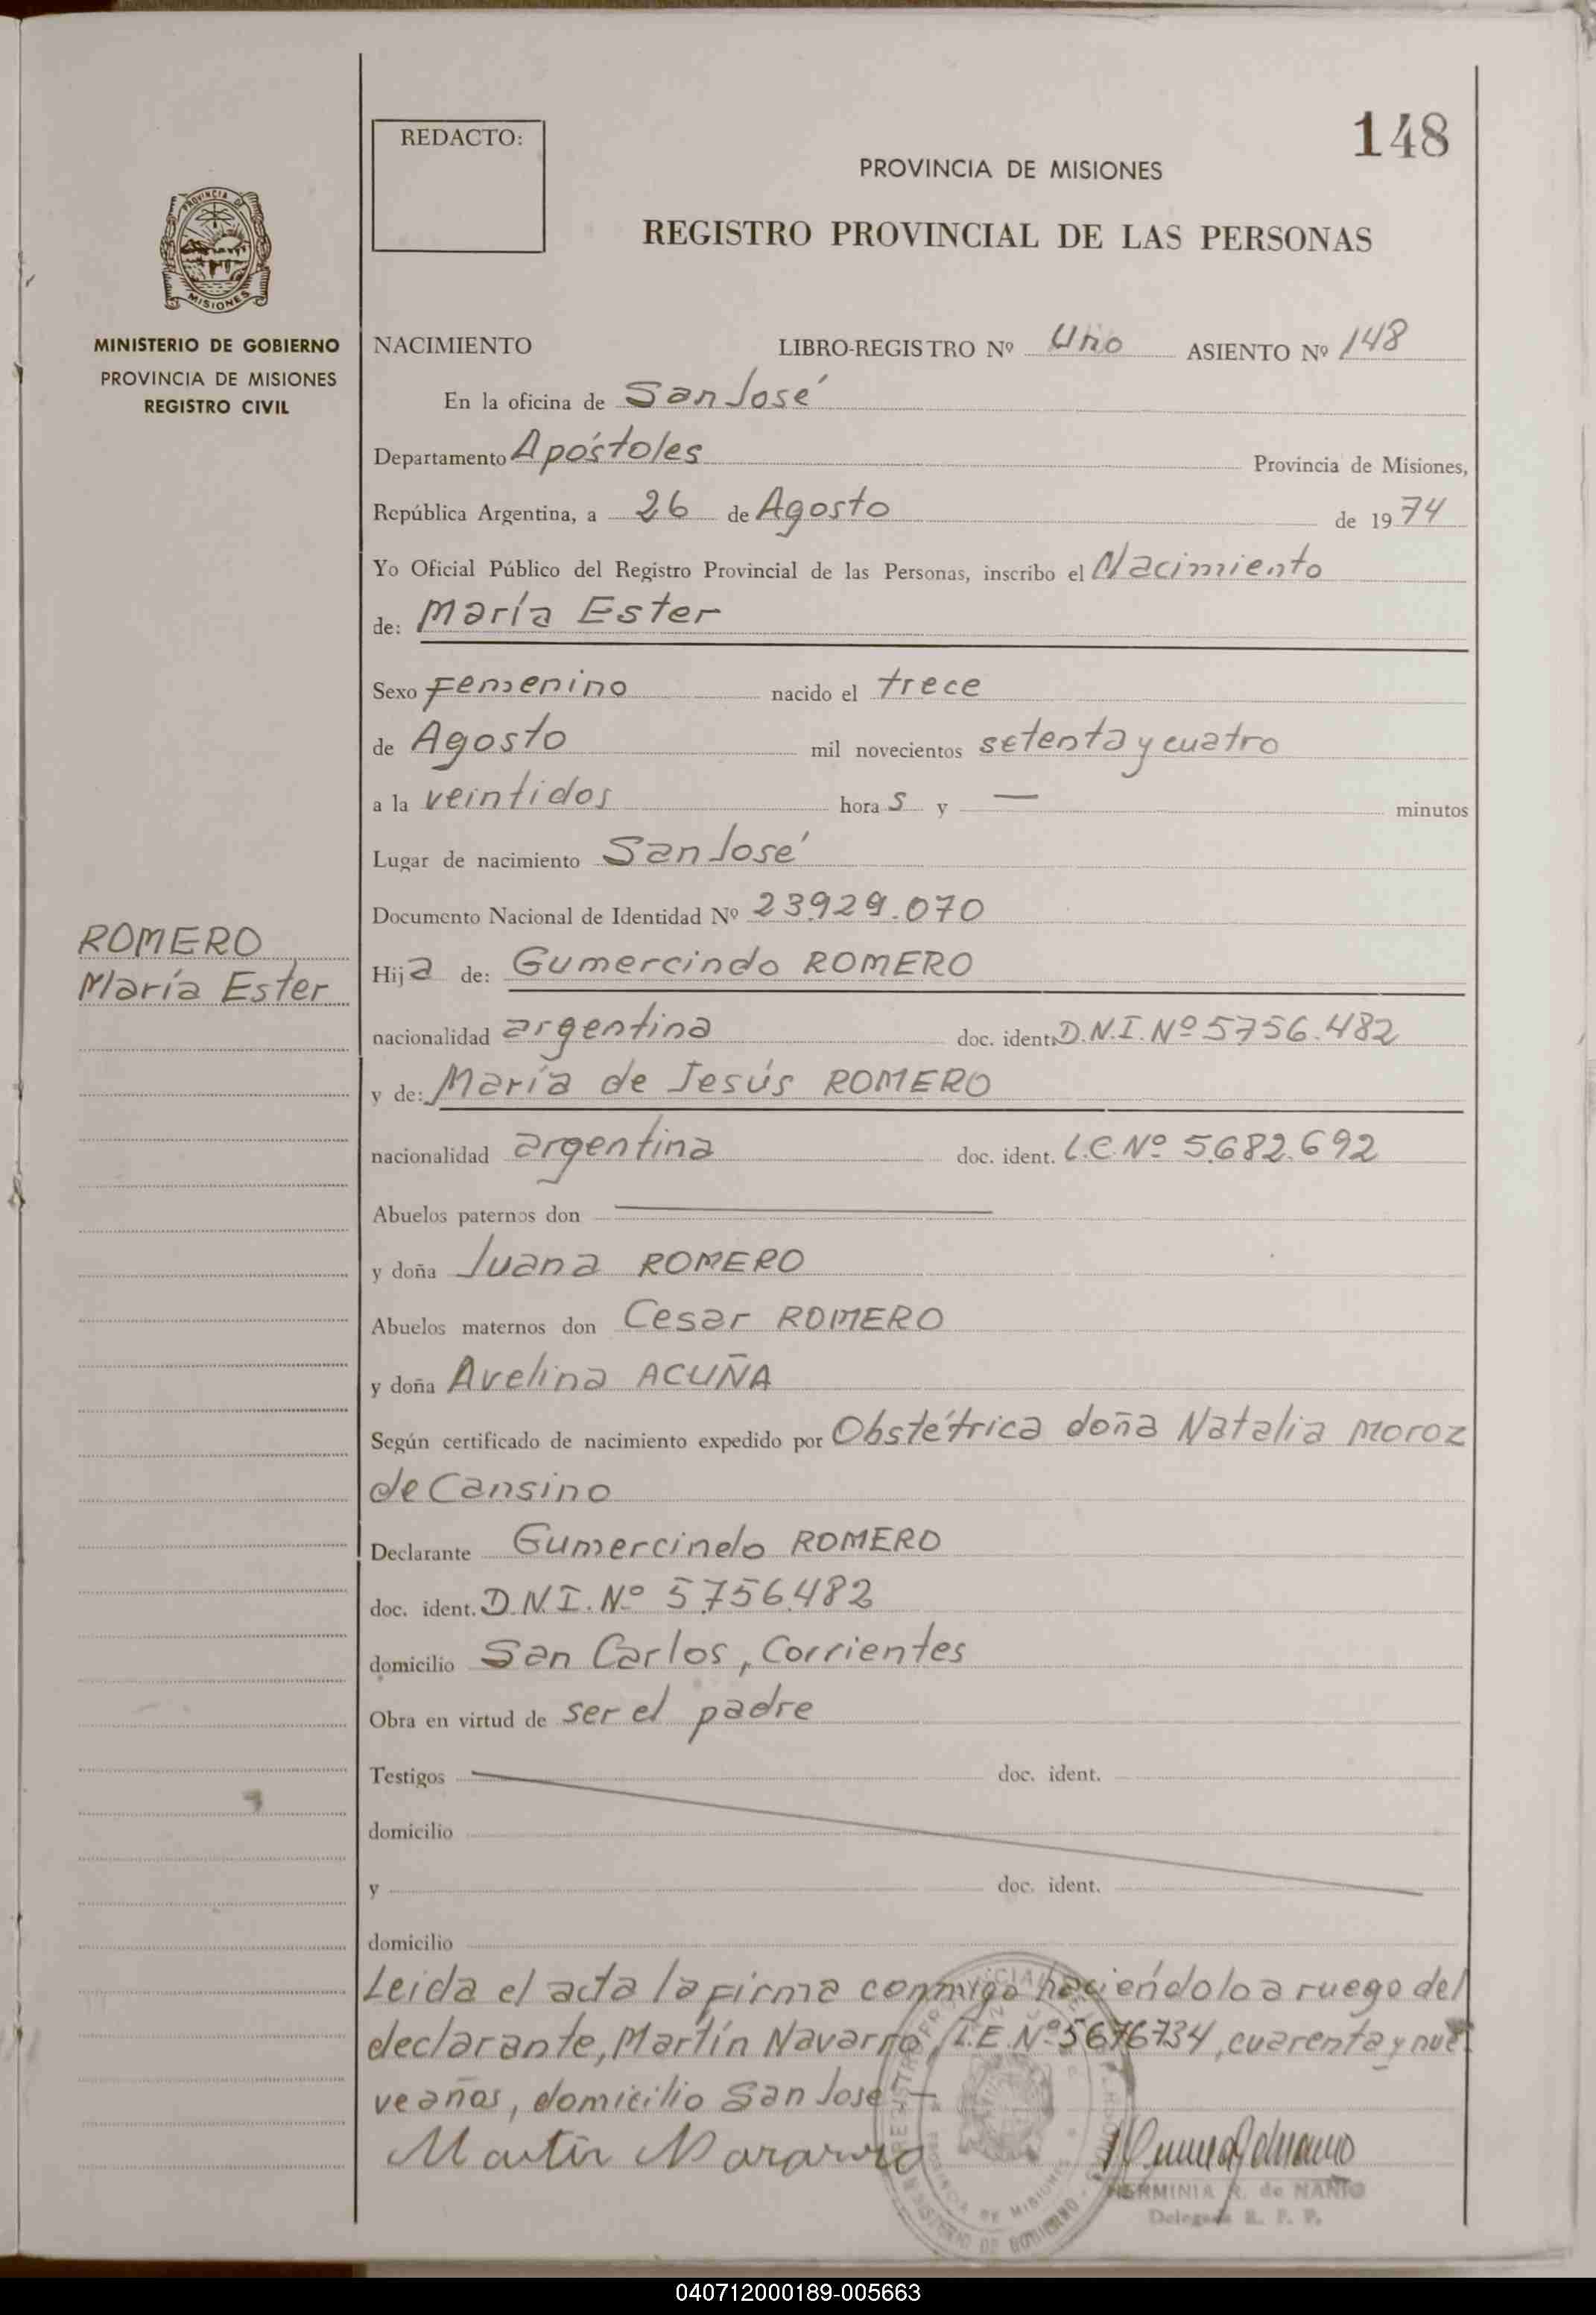 REDACTO:
148
PROVINCIA DE MISIONES
REGISTRO PROVINCIAL DE LAS PERSONAS
PROVINCIA DE
MISIONES
MINISTERIO DE GOBIERNO
PROVINCIA DE MISIONES
REGISTRO CIVIL
NACIMIENTO LIBRO-REGISTRO Nº Uno ASIENTO Nº 148
En la oficina de San José
Departamento Apóstoles Provincia de Misiones,
República Argentina, a 26 de Agosto de 1974
Yo Oficial Público del Registro Provincial de las Personas, inscribo el Nacimiento
de: María Ester
Sexo Femenino nacido el trece
de Agosto mil novecientos setenta y cuatro
a la veintidos hora s y — minutos
Lugar de nacimiento San José
Documento Nacional de Identidad Nº 23.929.070
ROMERO
María Ester
Hija de: Gumercindo ROMERO
nacionalidad argentina doc. ident. D.N.I. Nº 5756.482
y de: María de Jesús ROMERO
nacionalidad argentina doc. ident. L.C. Nº 5.682.692
Abuelos paternos don —
y doña Juana ROMERO
Abuelos maternos don Cesar ROMERO
y doña Avelina ACUÑA
Según certificado de nacimiento expedido por Obstétrica doña Natalia Moroz
de Cansino
Declarante Gumercindo ROMERO
doc. ident. D.N.I. Nº 5.756.482
domicilio San Carlos, Corrientes
Obra en virtud de ser el padre
Testigos doc. ident.
domicilio
y doc. ident.
domicilio
Leida el acta la firma conmigo haciéndolo a ruego del
declarante, Martín Navarro, L.E. Nº 5676734, cuarenta y nue
ve años, domicilio San José. —
Martin Navarro
HERMINIA R. de NANIO
Delegada R. P. P.
040712000189-005663